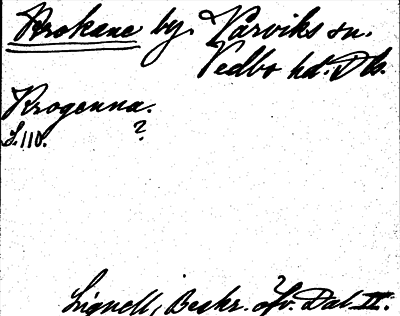 Krokane by. Vårviks sn.
Vedbo hd. Dls.
Krogenna.
S. 110. ?
Lignell, Beskr. öfv. Dal. II.